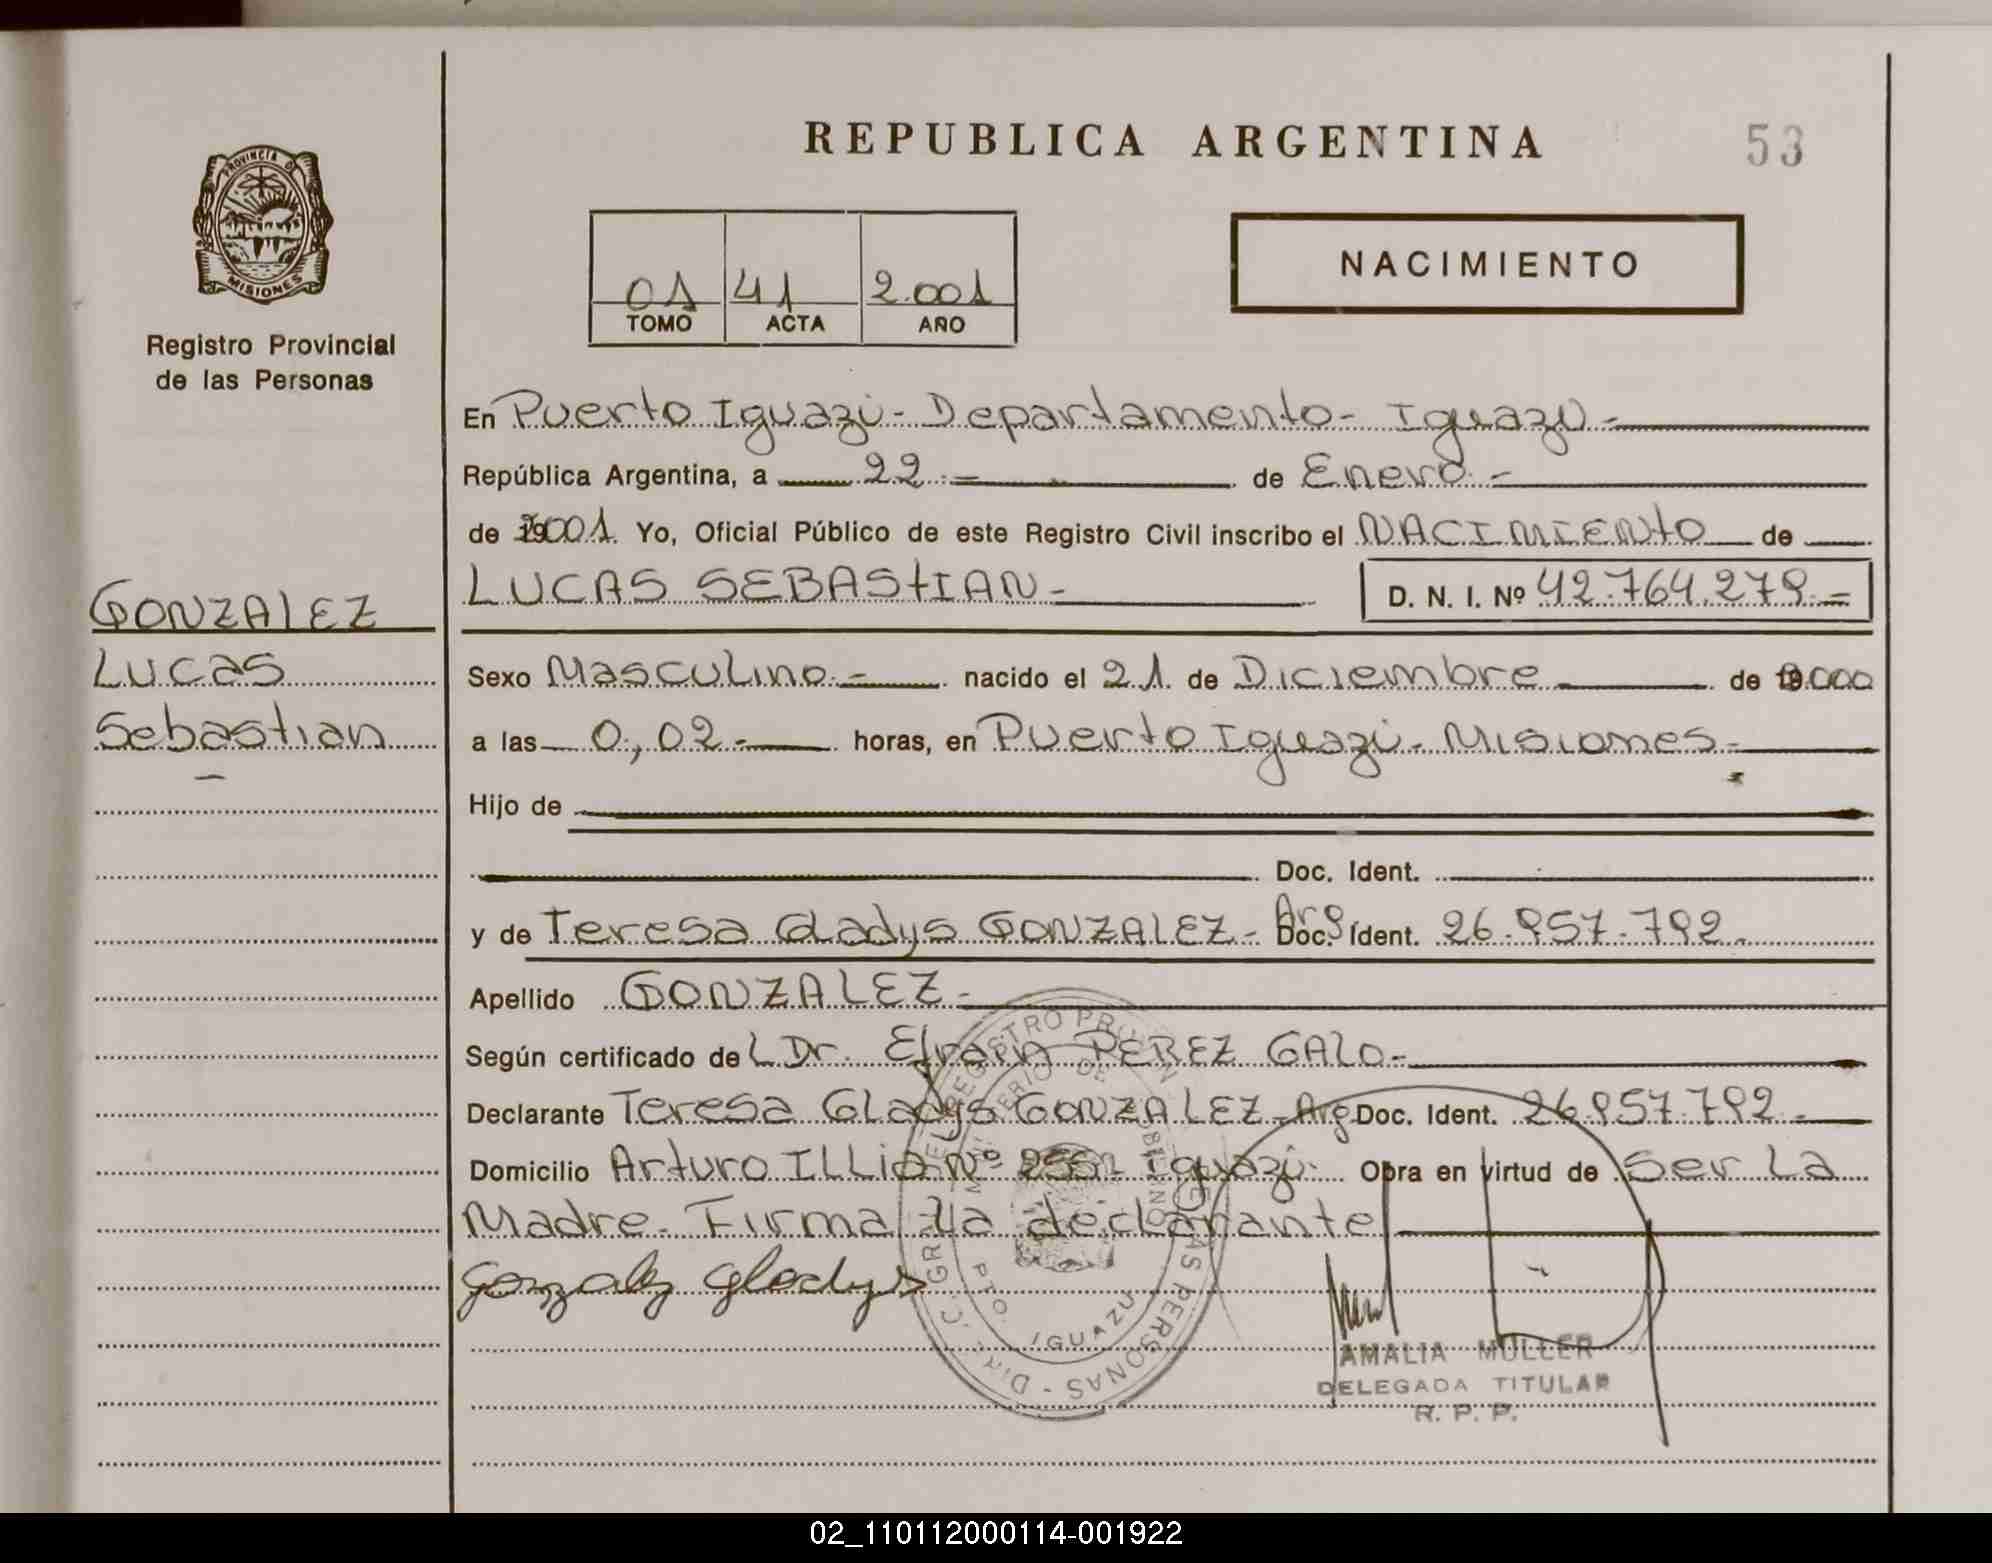 REPUBLICA ARGENTINA
53
PROVINCIA DE
MISIONES
Registro Provincial
de las Personas
01 41 2.001
TOMO ACTA AÑO
NACIMIENTO
En Puerto Iguazú - Departamento - Iguazú -
República Argentina, a 22 - de Enero -
de 2001. Yo, Oficial Público de este Registro Civil inscribo el NACIMIENTO de
LUCAS SEBASTIAN - D. N. I. Nº 42.764.279.=
GONZALEZ
Lucas
Sebastian
-
Sexo Masculino - nacido el 21 de Diciembre de 2.000
a las 0,02 - horas, en Puerto Iguazú - Misiones -
Hijo de
Doc. Ident.
y de Teresa Gladys GONZALEZ - Arg Doc. Ident. 26.957.792.
Apellido GONZALEZ -
Según certificado del Dr. Efrain PEREZ GALO -
Declarante Teresa Gladys GONZALEZ - Arg Doc. Ident. 26.957.792 -
Domicilio Arturo ILLia Nº Iguazú. Obra en virtud de Ser La
Madre. Firma La declarante
Gonzalez Gladys
PTO. IGUAZU
AMALIA MULLER
DELEGADA TITULAR
R. P. P.
02_110112000114-001922